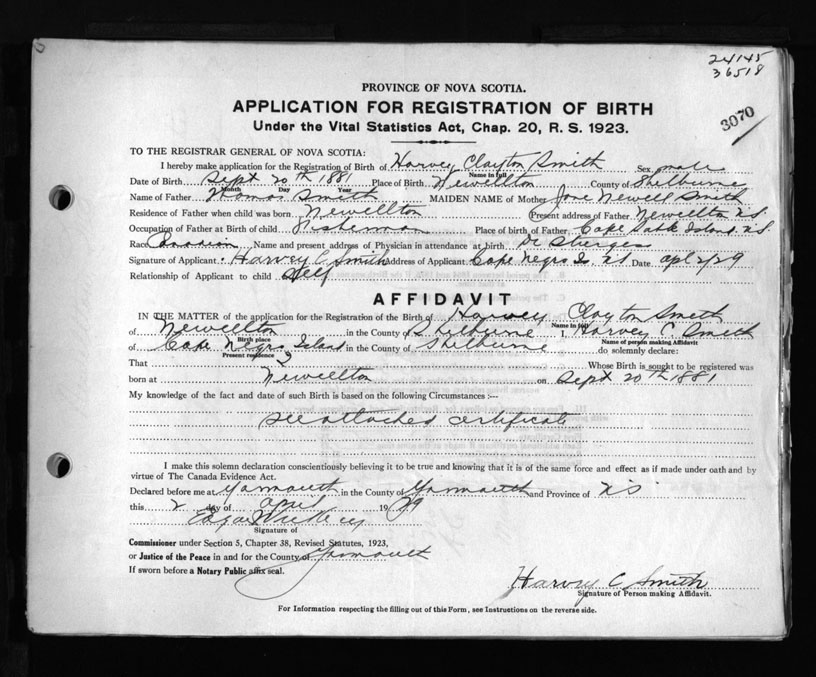 24145
36518
3070
PROVINCE OF NOVA SCOTIA.
APPLICATION FOR REGISTRATION OF BIRTH
Under the Vital Statistics Act, Chap. 20, R. S. 1923.
TO THE REGISTRAR GENERAL OF NOVA SCOTIA:
I hereby make application for the Registration of Birth of Harvey Clayton Smith Sex male
Name in full
Date of Birth Sept 20th 1881 Place of Birth Newellton County of Shelburne
Month Day Year
Name of Father Thomas Smith MAIDEN NAME of Mother Jane Newell Smith
Residence of Father when child was born Newellton Present address of Father Newellton N.S.
Occupation of Father at Birth of child Fisherman Place of birth of Father Cape Sable Island N.S.
Race Canadian Name and present address of Physician in attendance at birth Dr Sturges
Signature of Applicant Harvey C Smith Address of Applicant Cape Negro Is. N.S. Date Apl 2/29
Relationship of Applicant to child Self
AFFIDAVIT
IN THE MATTER of the application for the Registration of the Birth of Harvey Clayton Smith
Name in full
of Newellton in the County of Shelburne I, Harvey C. Smith
Birth place Name of person making Affidavit
of Cape Negro Island in the County of Shelburne do solemnly declare:
Present residence
That Whose Birth is sought to be registered was
born at Newellton on Sept 20th 1881
My knowledge of the fact and date of such Birth is based on the following Circumstances :—
See attached certificate
I make this solemn declaration conscientiously believing it to be true and knowing that it is of the same force and effect as if made under oath and by
virtue of The Canada Evidence Act.
Declared before me at Yarmouth in the County of Yarmouth and Province of N.S.
this 2 day of April 1929
Signature of
Commissioner under Section 5, Chapter 38, Revised Statutes, 1923,
or Justice of the Peace in and for the County of Yarmouth
If sworn before a Notary Public affix seal.
Harvey C Smith
Signature of Person making Affidavit.
For Information respecting the filling out of this Form, see Instructions on the reverse side.